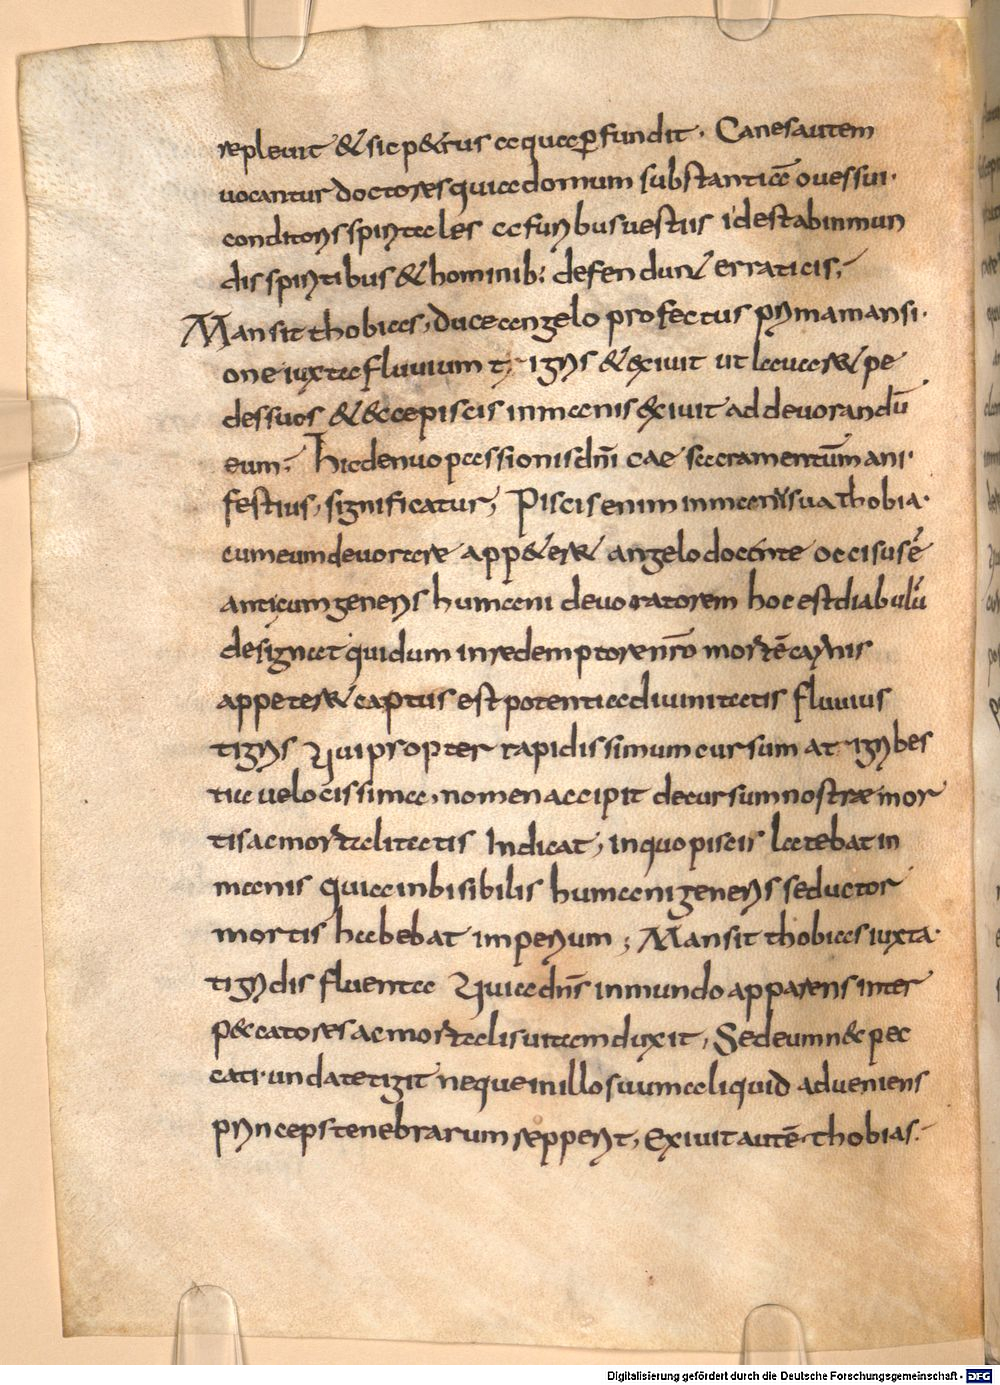 repleuit & sic p&rus aqua ꝑfundit · Canes autem
uocantur doctores quia domum substantiā oues sui ·
conditoris spiritales a furibus uestiis id est ab inmun
dis spiritibus & hominib: defendunt erraticis;
Mansit thobias, duce angelo profectus prima mansi ·
one iuxta fluuium tigris & exiuit ut lauar& pe
des suos & ecce piscis inmanis exiuit ad deuorandū
eum; Hic denuo passionis dn̄i cae sacramentum mani ·
festius, significatur, Piscis enim inmanis qua thobia ·
cum eum deuorare app&er& angelo docente occisus ē
anticum generis humani deuoratorem hoc est diabulū
designat qui dum in redemptore nr̄o mortē carnis
appeter& captus est potentia diuinitatis fluuius
tigris Qui propter rapidissimum cursum a tigri bes
tia uelocissima, nomen accipit decursum nostræ mor
tis ac mortalitatis Indicat, in quo piscis latebat in
manis quia inbisibilis humani generis seductor
mortis habebat imperium ; Mansit thobias iuxta ·
tigridis fluenta Quia dn̄s in mundo apparens inter
peccatores ac mortales uitam duxit, Sed eum nec pec
cati unda tetigit neque in illo suum aliquid adueniens
princeps tenebrarum repperit, Exiuit autē thobias.
Digitalisierung gefördert durch die Deutsche Forschungsgemeinschaft - DFG